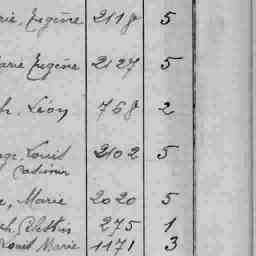 rie, Eugène 2118 5
arie Eugène 2127 5
h, Léon 768 2
Louis 2102 5
Casimir
e, Marie 2020 5
ph, Célestin 275 1
Louis Marie 1171 3